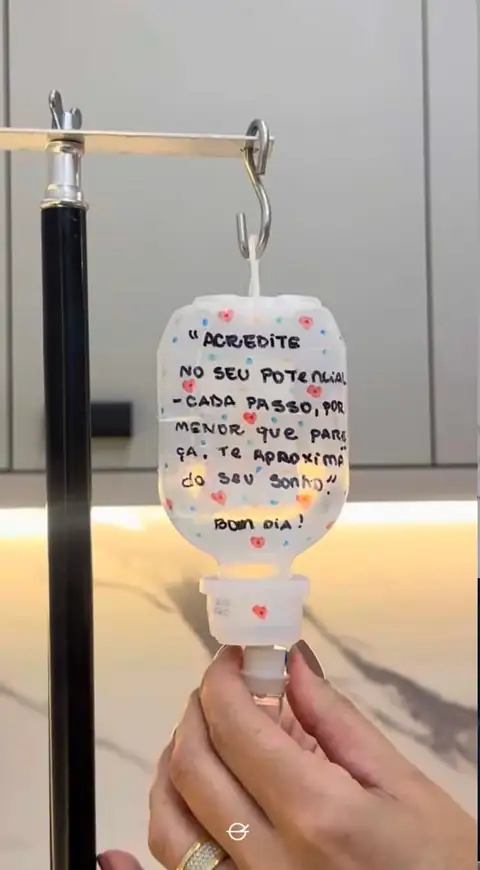 "ACREDITE
NO SEU POTENCIAL
- CADA PASSO, POR
MENOR QUE PARE
ÇA, TE APROXIMA
do SEU SONHO."
BOM DIA!